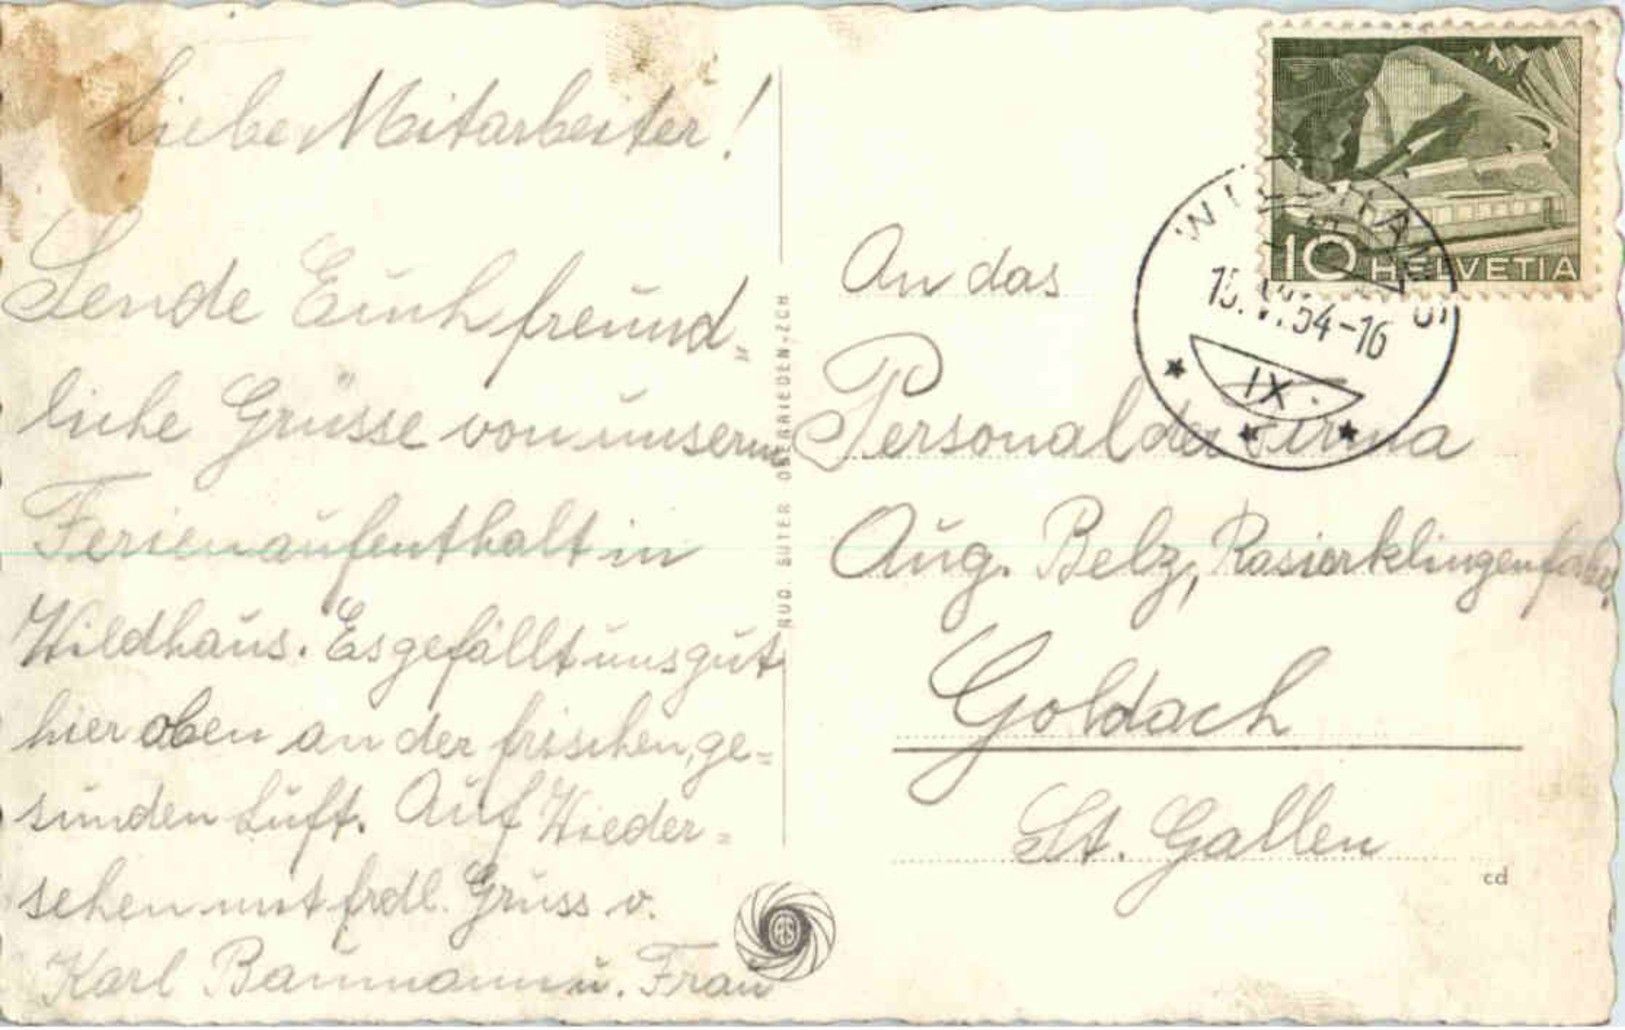 Liebe Mitarbeiter!
Sende Euch freund-
liche Grüsse von unserm
Ferienaufenthalt in
Wildhaus. Es gefällt uns gut
hier oben an der frischen, ge-
sunden Luft. Auf Wieder-
sehen mit frdl. Gruss v.
Karl Baumann u. Frau
RUD. SUTER OBERRIEDEN-ZCH
RS
HELVETIA
10
54-16
IX.
An das
Personal der Firma
Aug. Belz, Rasierklingenfabr.
Goldach
St. Gallen
cd